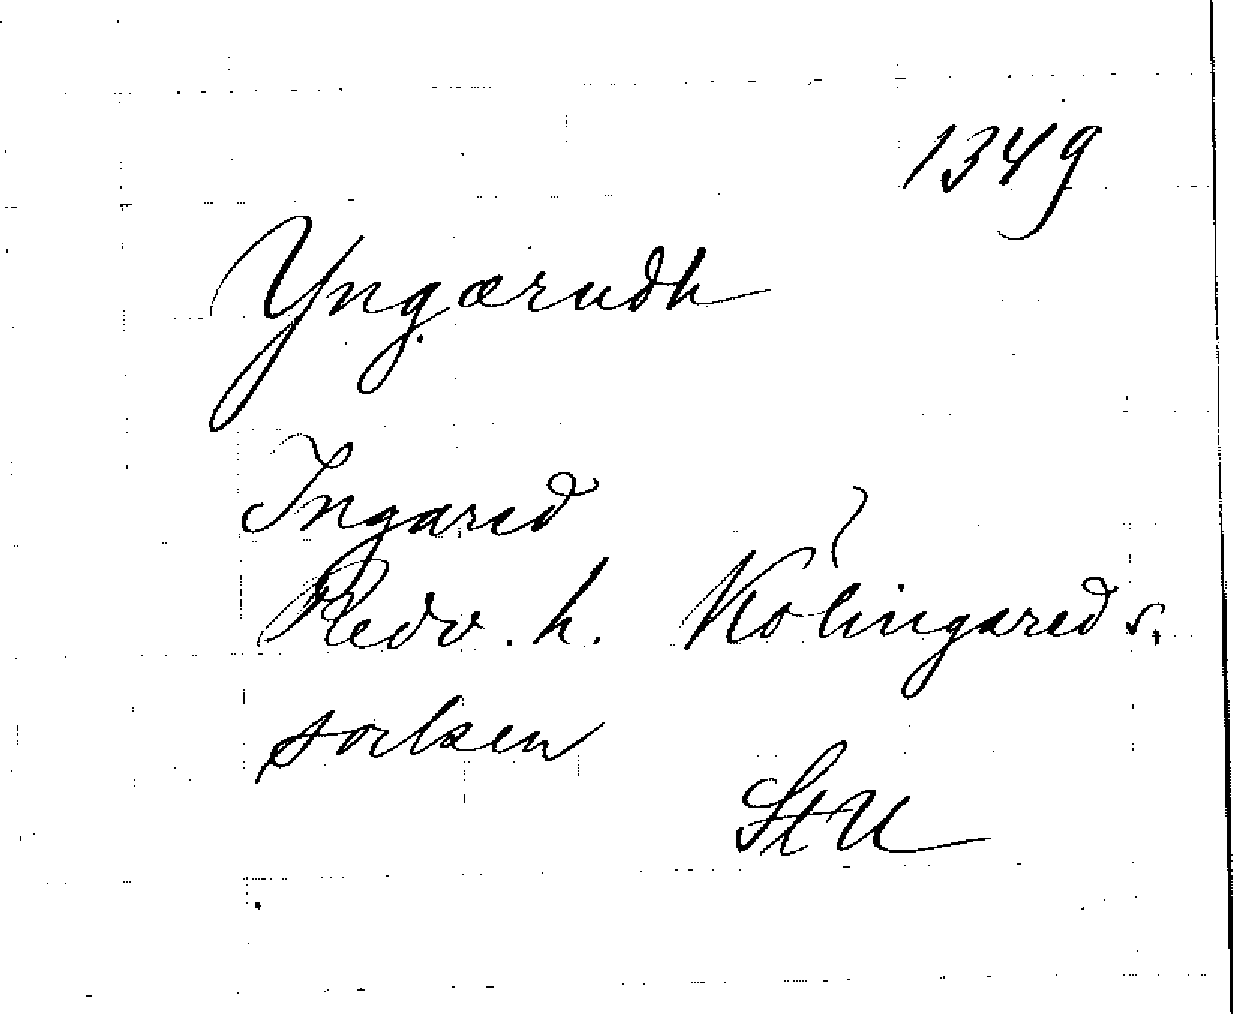 1349
Yngærudh
Ingared
Redv. h. Kölingared s.
socken
StU